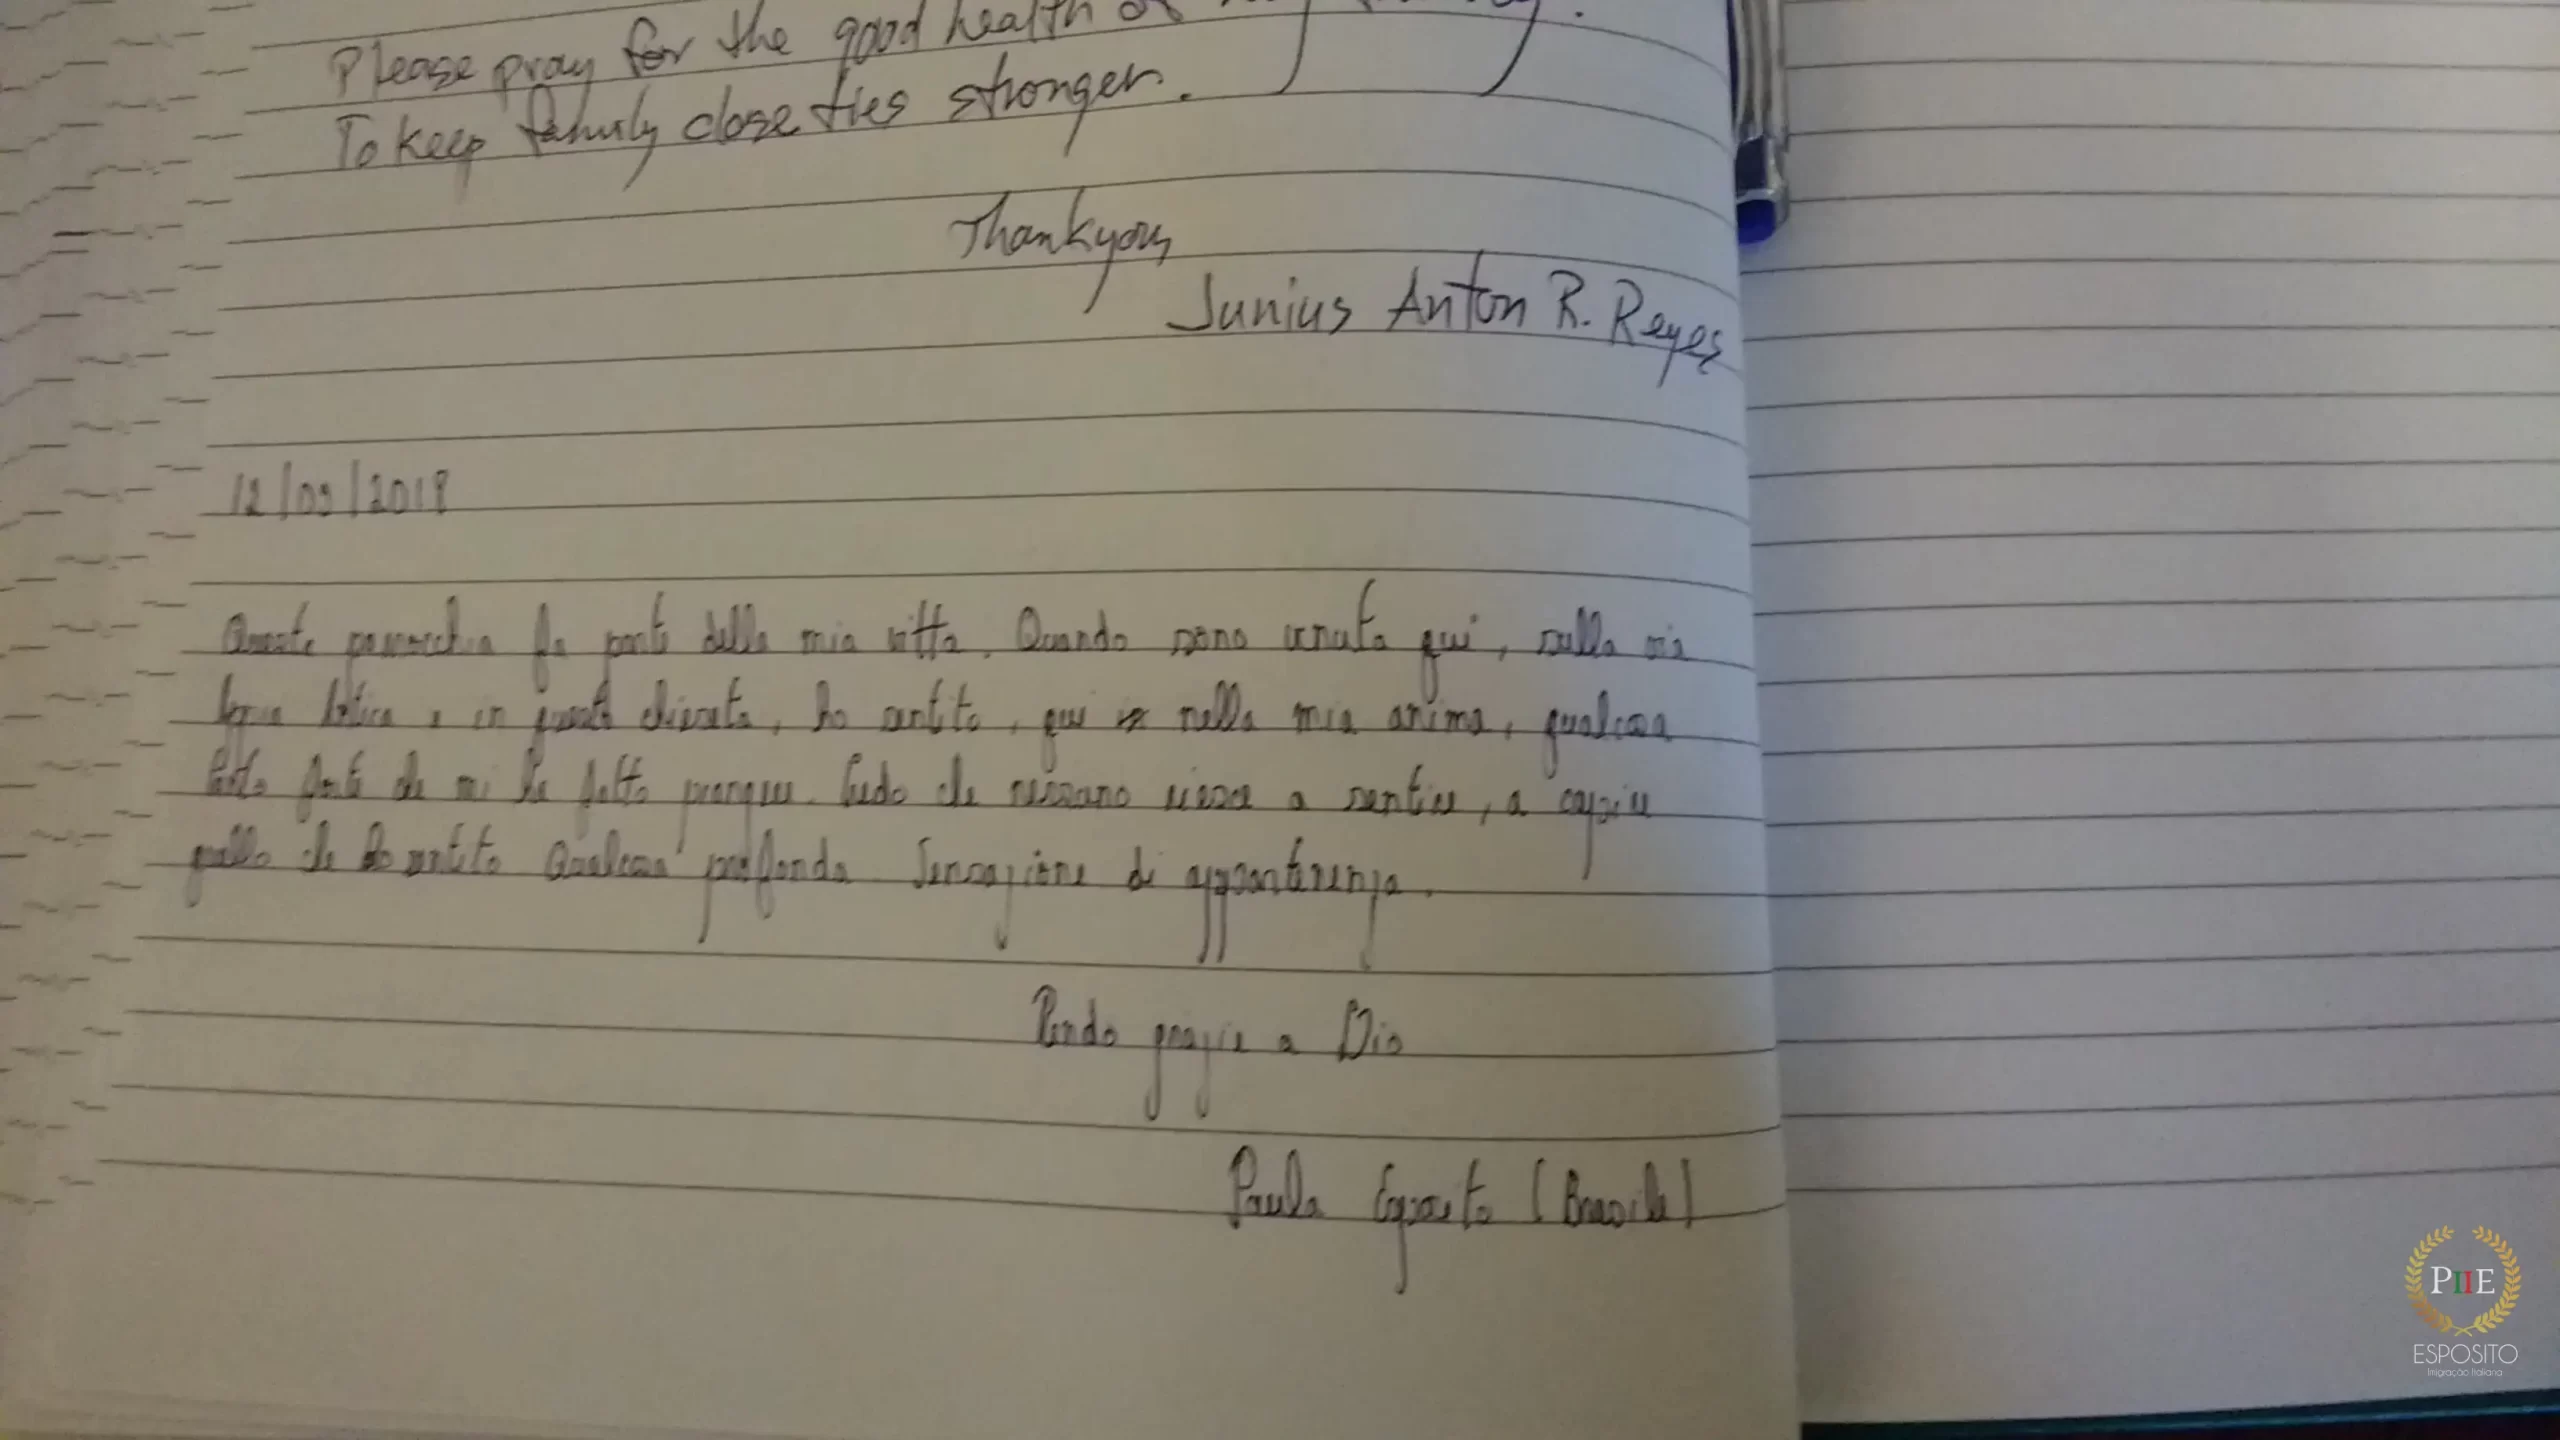 Please pray for the good health of my family.
To keep family close ties stronger.
Thankyou
Junius Anton R. Reyes
12/09/2018
Queste parrocchia fa parte della mia vitta. Quando sono venuta qui, sulla via
e in questa chieseta, ho sentito, qui nella mia anima, qualcosa
forte che mi ha fatto piangere. Credo che nessuno riesce a sentire, a capire
quello che ho sentito Qualcosa profonda Sensazione di appartenenza.
Rendo grazie a Dio
Paula Esposito (Brasile)
PIIE
ESPOSITO
Imigração Italiana